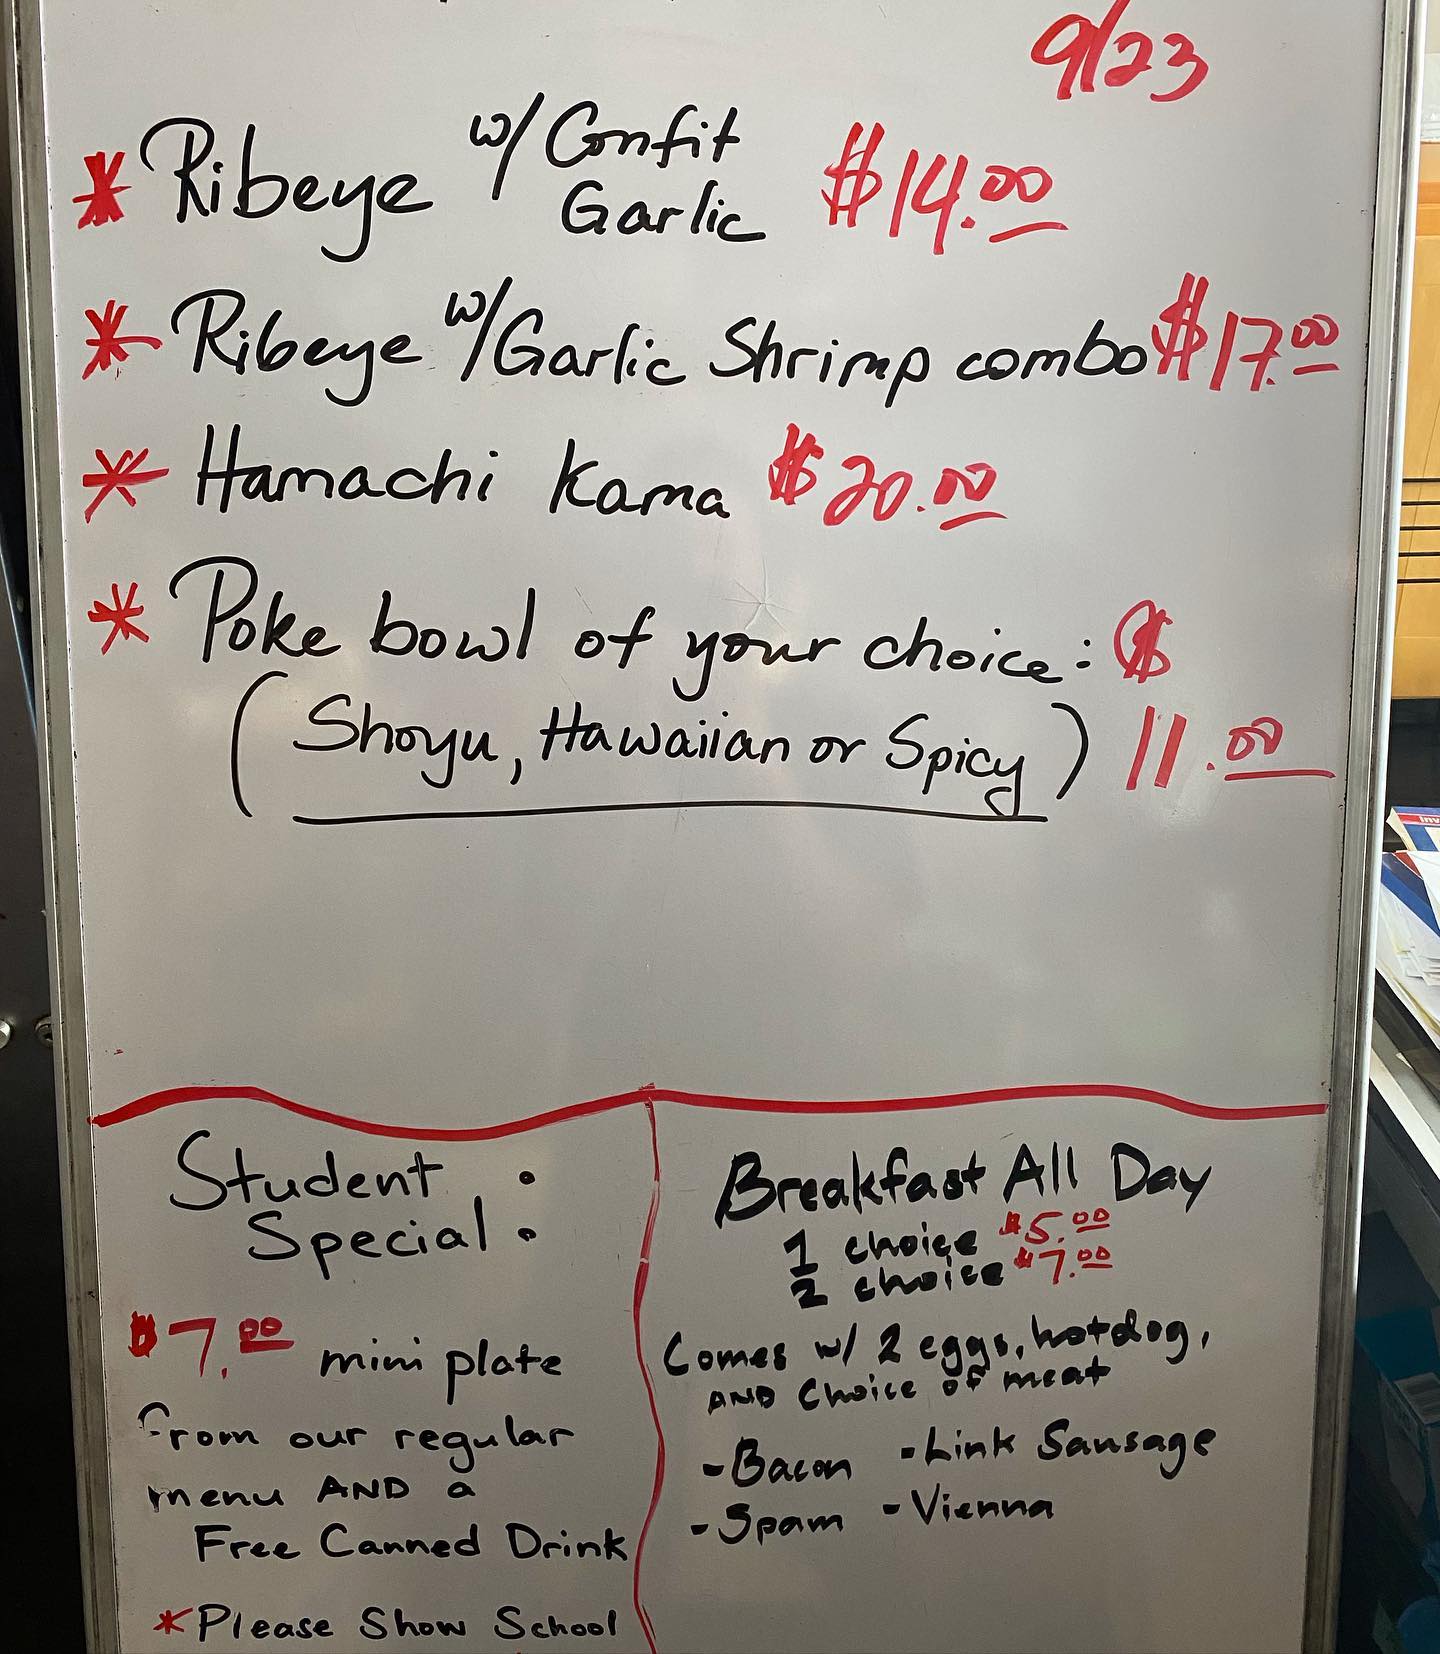 9/23
* Ribeye w/ Confit Garlic $14.00
* Ribeye w/ Garlic Shrimp combo $17.00
* Hamachi Kama $20.00
* Poke bowl of your choice: $
(Shoyu, Hawaiian or Spicy) 11.00
Student
Special:
$7.00 mini plate
From our regular
menu AND a
Free Canned Drink
*Please Show School
Breakfast All Day
1 choice $5.00
2 choice $7.00
Comes w/ 2 eggs, hotdog,
AND Choice of meat
-Bacon -Link Sausage
-Spam -Vienna